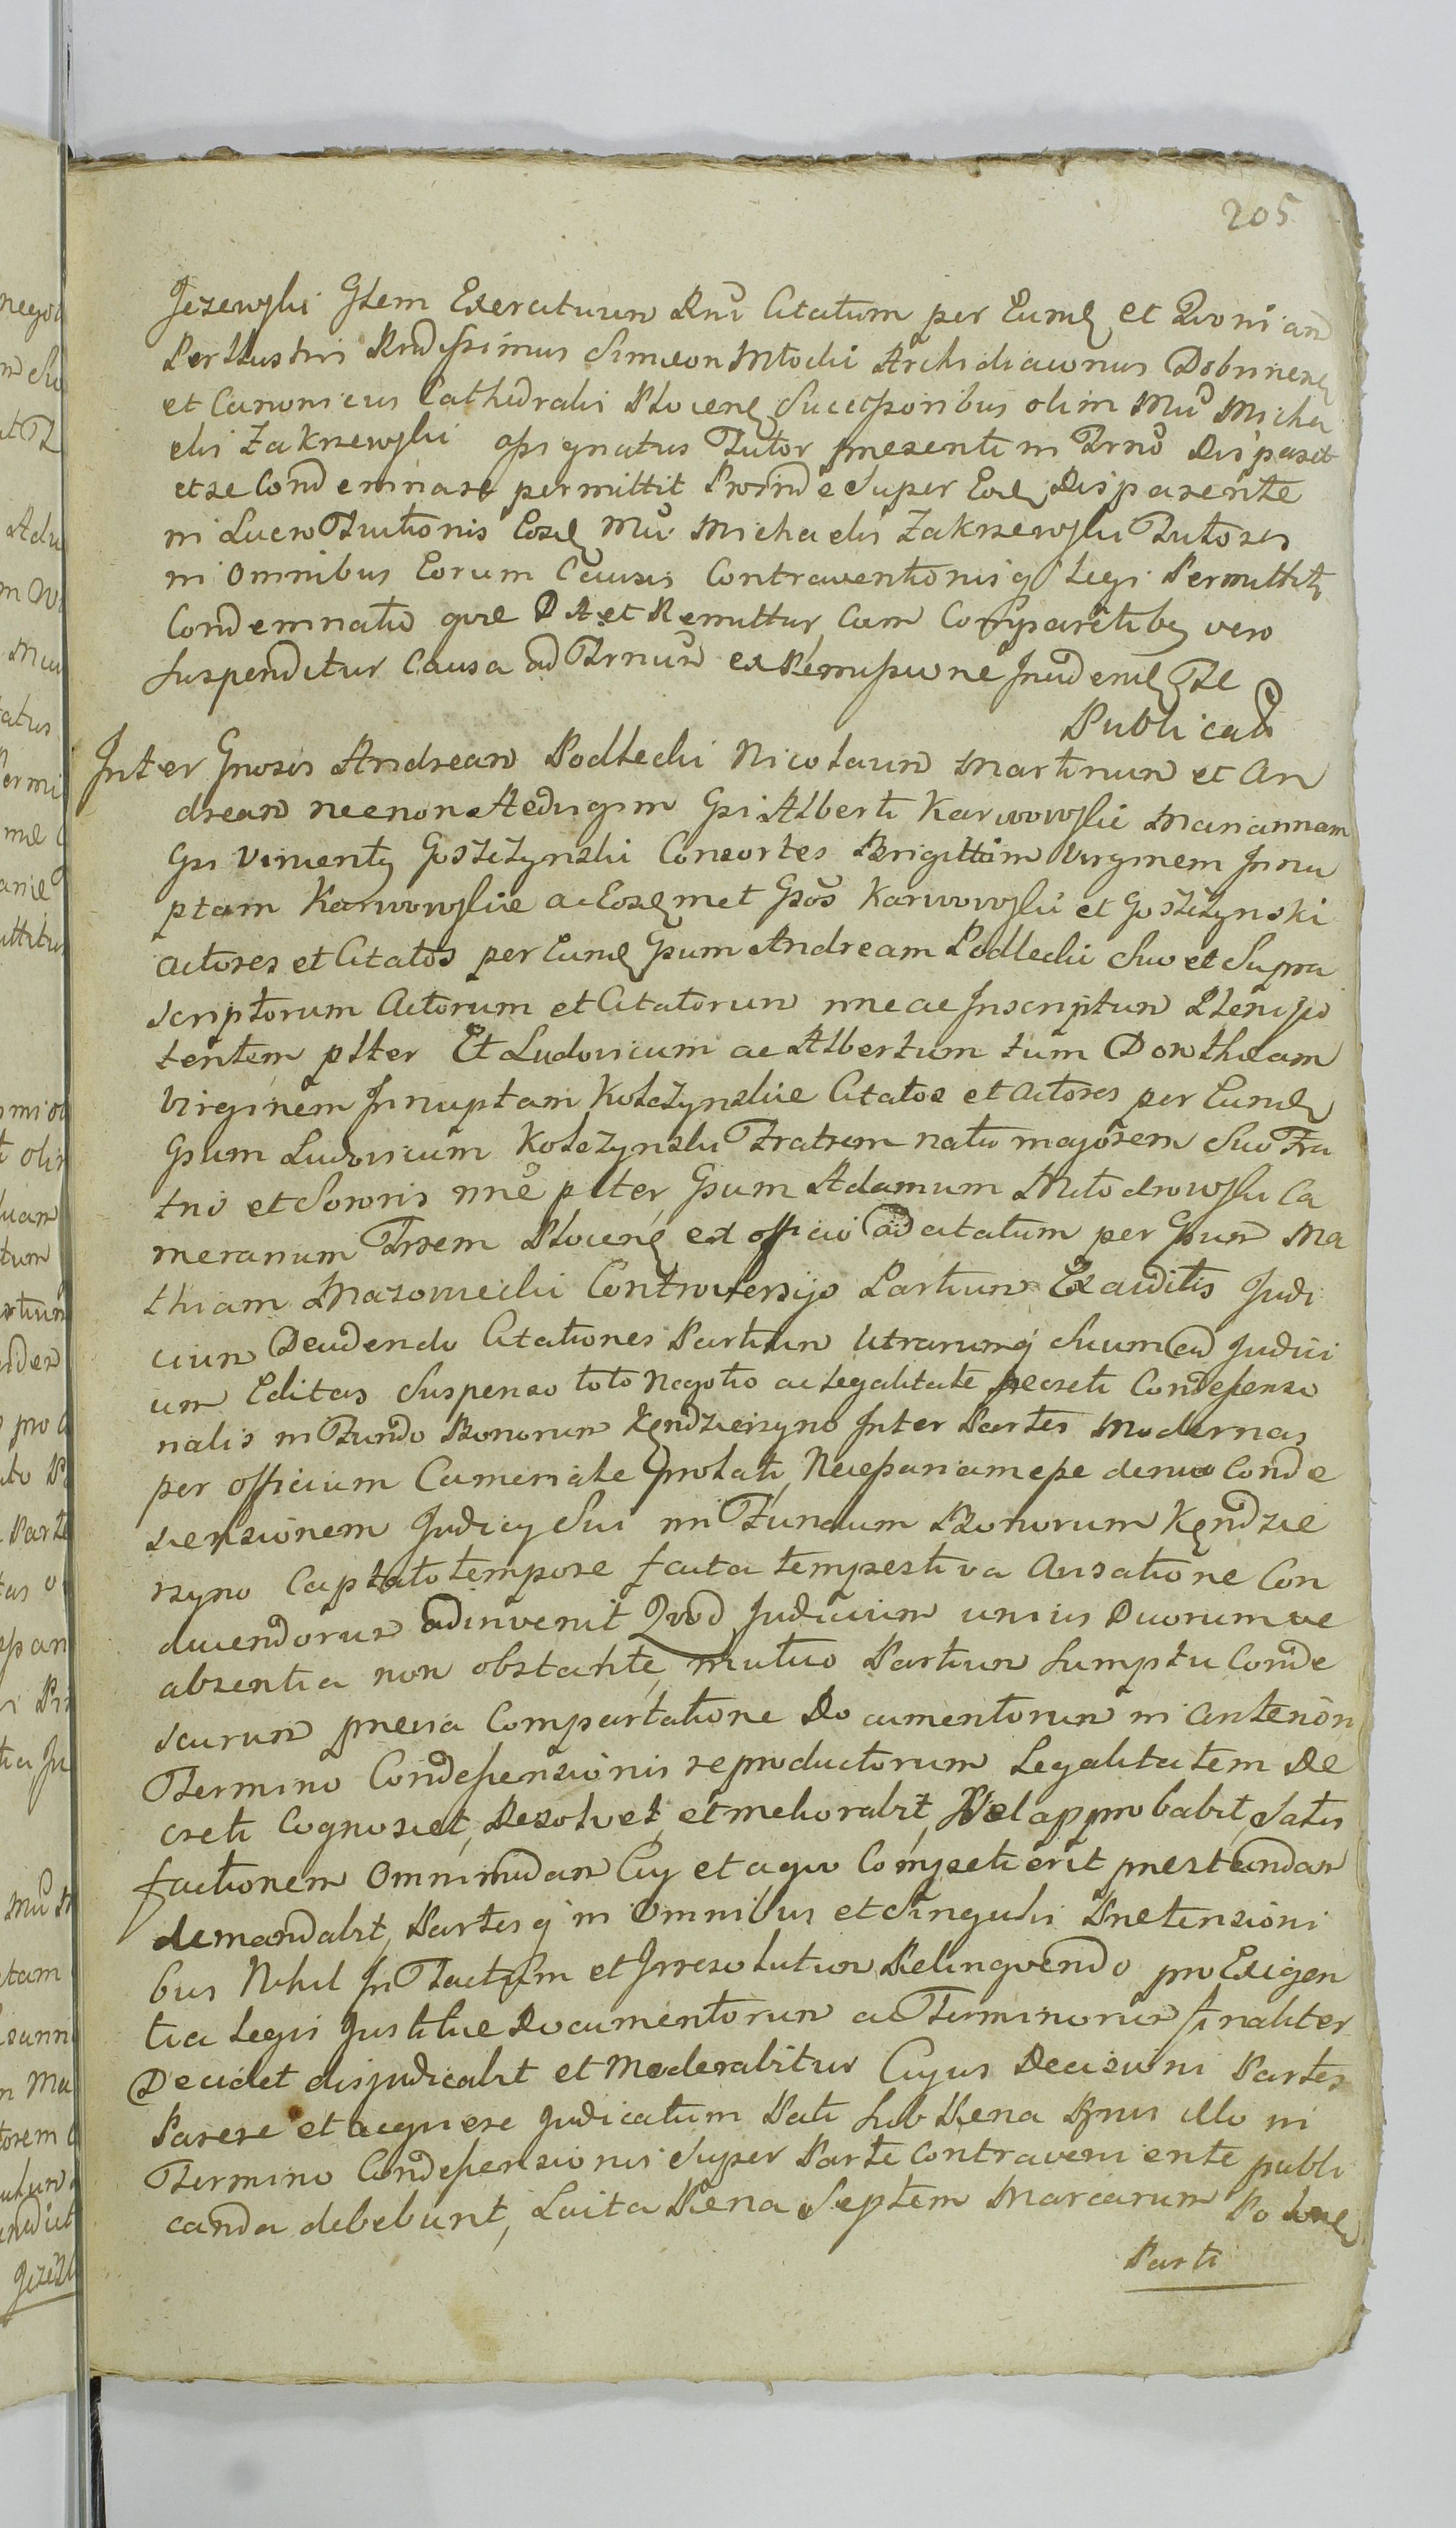 205
Jezewski Gtem Exercituum Rni Citatum per Eund et Quoniam
Perillustris Rndissimus Simeon Młocki Archidiaconus Dobrinen
et Canonicus Cathedralis Plocen Successoribus olim Mci Micha
elis Zakrzewski assignatus Tutor presenti in Trno Disparet
et se Condemnare permittit Proinde Super Eod Disparente
in Lucro Tuitionis Eosd Mci Michaelis Zakrzewski Tutores
in Omnibus Eorum Causis Contraventionisq Legi Permittit
Condemnatio que Dat et Remittitur, Cum Comparentibq vero
Suspenditur Causa ad Trnum ex Remissione
Publicat
Inter Gnosos Andream Podlecki Nicolaum Martinum et An
dream necnon Hedvigim Gsi Alberti Karwowskie Mariannam
Gsi Vincenty Goszczynski Consortes Brigittam Virginem Innu
ptam Karwowskie ac Eosdmet Gsos Karwowski et Goszczynski
Actores et Citatos per Eund Gsum Andream Podlecki Suo et Supra
scriptorum Actorum et Citatorum nne ac Inscriptum Plenipo
tentem plter Et Ludovicum ac Albertum tum Dorotheam
Virginem Innuptam Kolczynskie Citatos et Actores per Eund
Gsum Ludovicum Kolczynski Fratrem natu majorem Suo Fra
tris et Sororis nne plter, Gsum Adamum Młodrowski Ca
merarium Trrem Plocen ex officio adcitatum per Gsum Ma
thiam Mazowiecki Controversijs Partium Exauditis Judi
cium Decidendo Citationes Partium Utrarumq Suum ad Judici
um Editas Suspenso toto Negotio ac Legalitate Decreti Condescensio
nalis in Fundo Bonorum Kędzierzyno Inter Partes Modernas
per Officium Camerale prolati, Necessariam esse denuo Conde
scensionem Judicy Sui in Fundum Bonorum Kędzie
rzyno Captato tempore facta tempestiva Avisatione Con
ducendorum adinvenit Quod Judicium unius Duorumve
absentia non obstante, mutuo Partium Sumptu Conde
scurum previa Comportatione Documentorum in Anteriori
Termino Condescensionis reproductorum Legalitatem De
creti Cognoscet, Resolvet, et meliorabit, Vel approbabit, Satis
factionem Omnimodam Cuj et a quo Competierit prestandam
demandabit, Partesq in Omnibus et Singulis Pretensioni
bus Nihil Intactum et Irresolutum Relinquendo pro Exigen
tia Legis Justitie Documentorum ac Terminorum finaliter
Decidet disjudicabit et Moderabitur Cujus Decisioni Partes
Parere et acquiere Judicatum Pati Sub Pena Bnis illo in
Termino Condescensionis Super Parte contraveniente publi
canda debebunt, Luita Pena Septem Marcarum Polonl
Parti